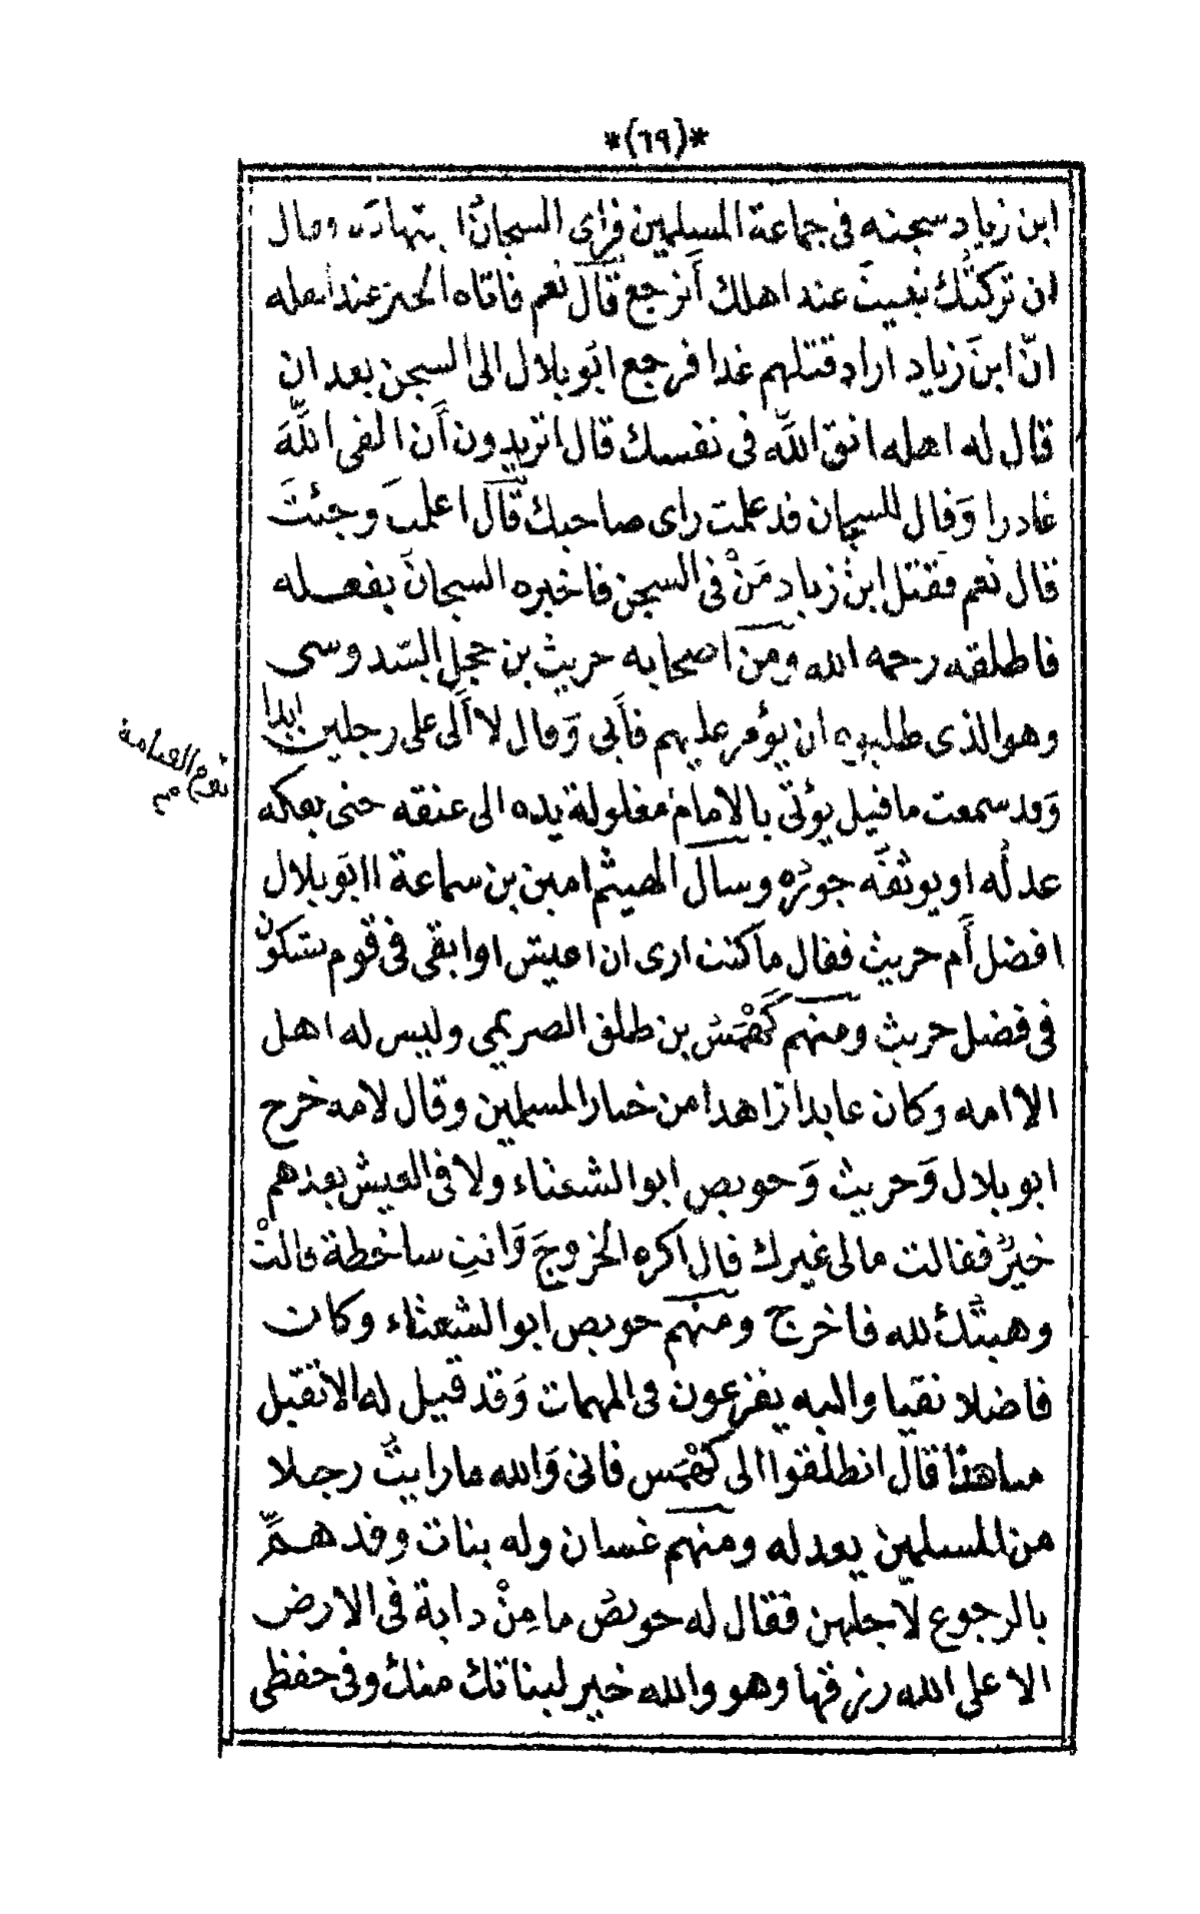 *(٦٩)*
ابن زياد سجنه فى جماعة المسلمين فراى السجانُ اجتهاده وقال
ان تركتُك تغيب عند اهلك أترجع قال نعم فاتاه الخبر عند اهله
انّ ابنَ زياد اراد قتلهم غدا فرجع ابَو بلال الى السجن بعد ان
قال له اهله اتق اللّه فى نفسك قال اتريدون أَن القى اللّهَ
غادرا وَقال للسجان قد علمت راى صاحبك قال اعلمتَ وجئتَ
قال نعم فقتل ابنُ زياد مَنْ فى السجن فاخبره السجانَ بفعـله
فاطلقه رحمه الله ومن اصحابه حريث بن حجل السّدوسى
وهو الذى طلبوه ان يؤمر عليهم فأبى وَقال لا أَلى على رجلين ابدا
يوم القيامة
مـ
وَقد سمعت ما قيل يؤتى بالامام مغلولة يده الى عنقه حتى يفكه
عدلُه او يوثقَه جورُه وسال الهيثم امين بن سماعة اابَو بلال
افضل أَم حريث فقال ما كنت ارى ان اعيش او ابقى فى قوم يشكون
فى فضل حريث ومنهم كَهْمَسُ بن طلق الصريمى وليس له اهل
الا امه وكان عابدا زاهدا من خيار المسلمين وقال لامه خرج
ابو بلال وَحريث وَحويص ابو الشعثاء ولا فى العيش بعدهم
خيرٌ فقالت مالى غيرك قال اكره الخروجَ وَانتِ ساخطة قالتْ
وهبتُك لله فاخرج ومنهم حويص ابو الشعثاء وكان
فاضلا تقيا واليه يفزعون فى المهمات وَقد قيل له الا تقبل
مـا هذا قال انطلقوا الى كَهْمَس فانى وَالله ما رايتُ رجـلا
من المسلمين يعدله ومنهم غسان وله بنات وقد هـمَّ
بالرجوع لاجلهن فقال له حويصُ ما مِنْ دابة فى الارض
الا على الله رزقها وهو والله خير لبناتك منك وفى حفظى